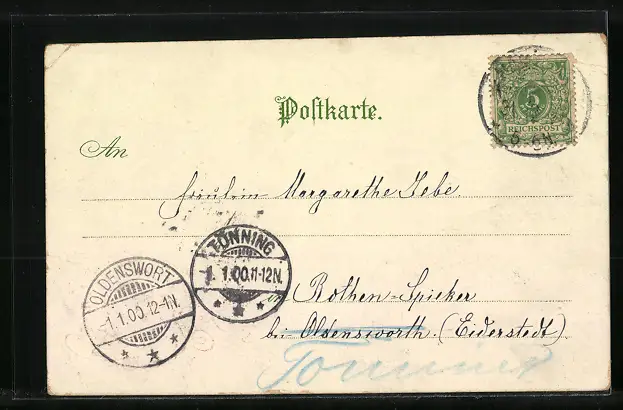 Postkarte.
5
REICHSPOST
An
Fräulein Margarethe Jebe
TÖNNING
1.1.00.11-12N.
OLDENSWORT
1.1.00.12-1N.
in Rothen-Spieker
bei Oldensworth (Eiderstedt)
Tönning